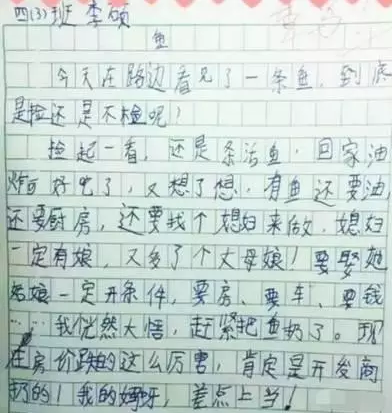 四(3)班 李硕
鱼
今天在路边看见了一条鱼，到底
是捡还是不检呢！
捡起一看，还是条活鱼，回家油
炸可好吃了，又想了想，有鱼还要油，
还要厨房，还要找个媳妇来做，媳妇
一定有娘，又多了个丈母娘！要娶她
姑娘一定开条件，要房、要车、要钱
……我恍然大悟，赶紧把鱼扔了。现
在房价跌的这么厉害，肯定是开发商
扔的！我的妈呀，差点上当！